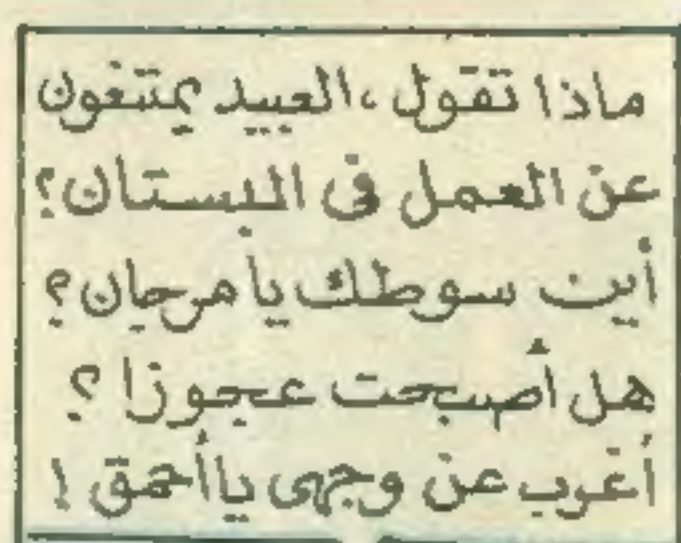 ماذا تقول ،العبيد يمتنعون
عن العمل فى البستان؟
أين سوطك يا مرجان؟
هل أصبحت عجوزا ؟
أغرب عن وجهى ياأحمق !